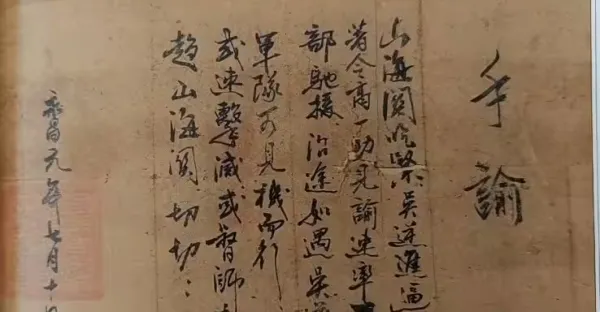 手諭
山海関吃緊吳逆進逼
著令高一功見諭速率
部馳援沿途如遇吳
軍隊可見機而行
或速擊滅或督師
趨山海関切切
元年七月十